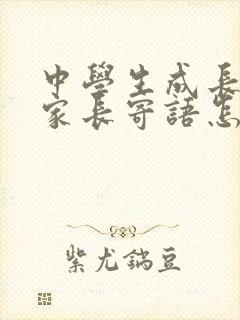 中學生成長
家長寄語怎
紫尤鎬豆